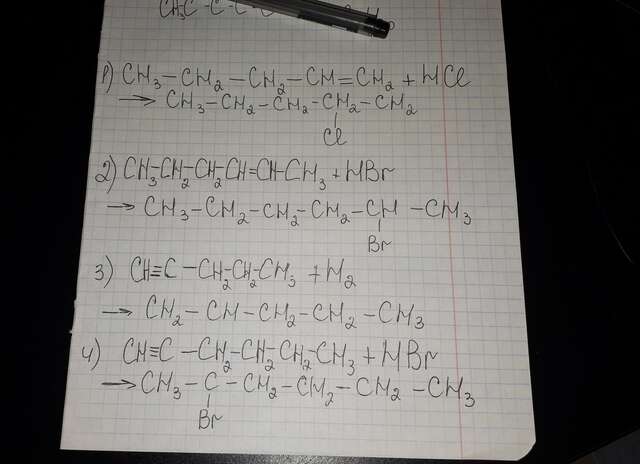 1) CH₃–CH₂–CH₂–CH=CH₂ + HCl
→ CH₃–CH₂–CH₂–CH₂–CH₂
Cl
2) CH₃–CH₂–CH₂–CH=CH–CH₃ + HBr
→ CH₃–CH₂–CH₂–CH₂–CH–CH₃
Br
3) CH≡C–CH₂–CH₂–CH₃ + H₂
→ CH₂–CH–CH₂–CH₂–CH₃
4) CH≡C–CH₂–CH₂–CH₂–CH₃ + HBr
→ CH₃–C–CH₂–CH₂–CH₂–CH₃
Br